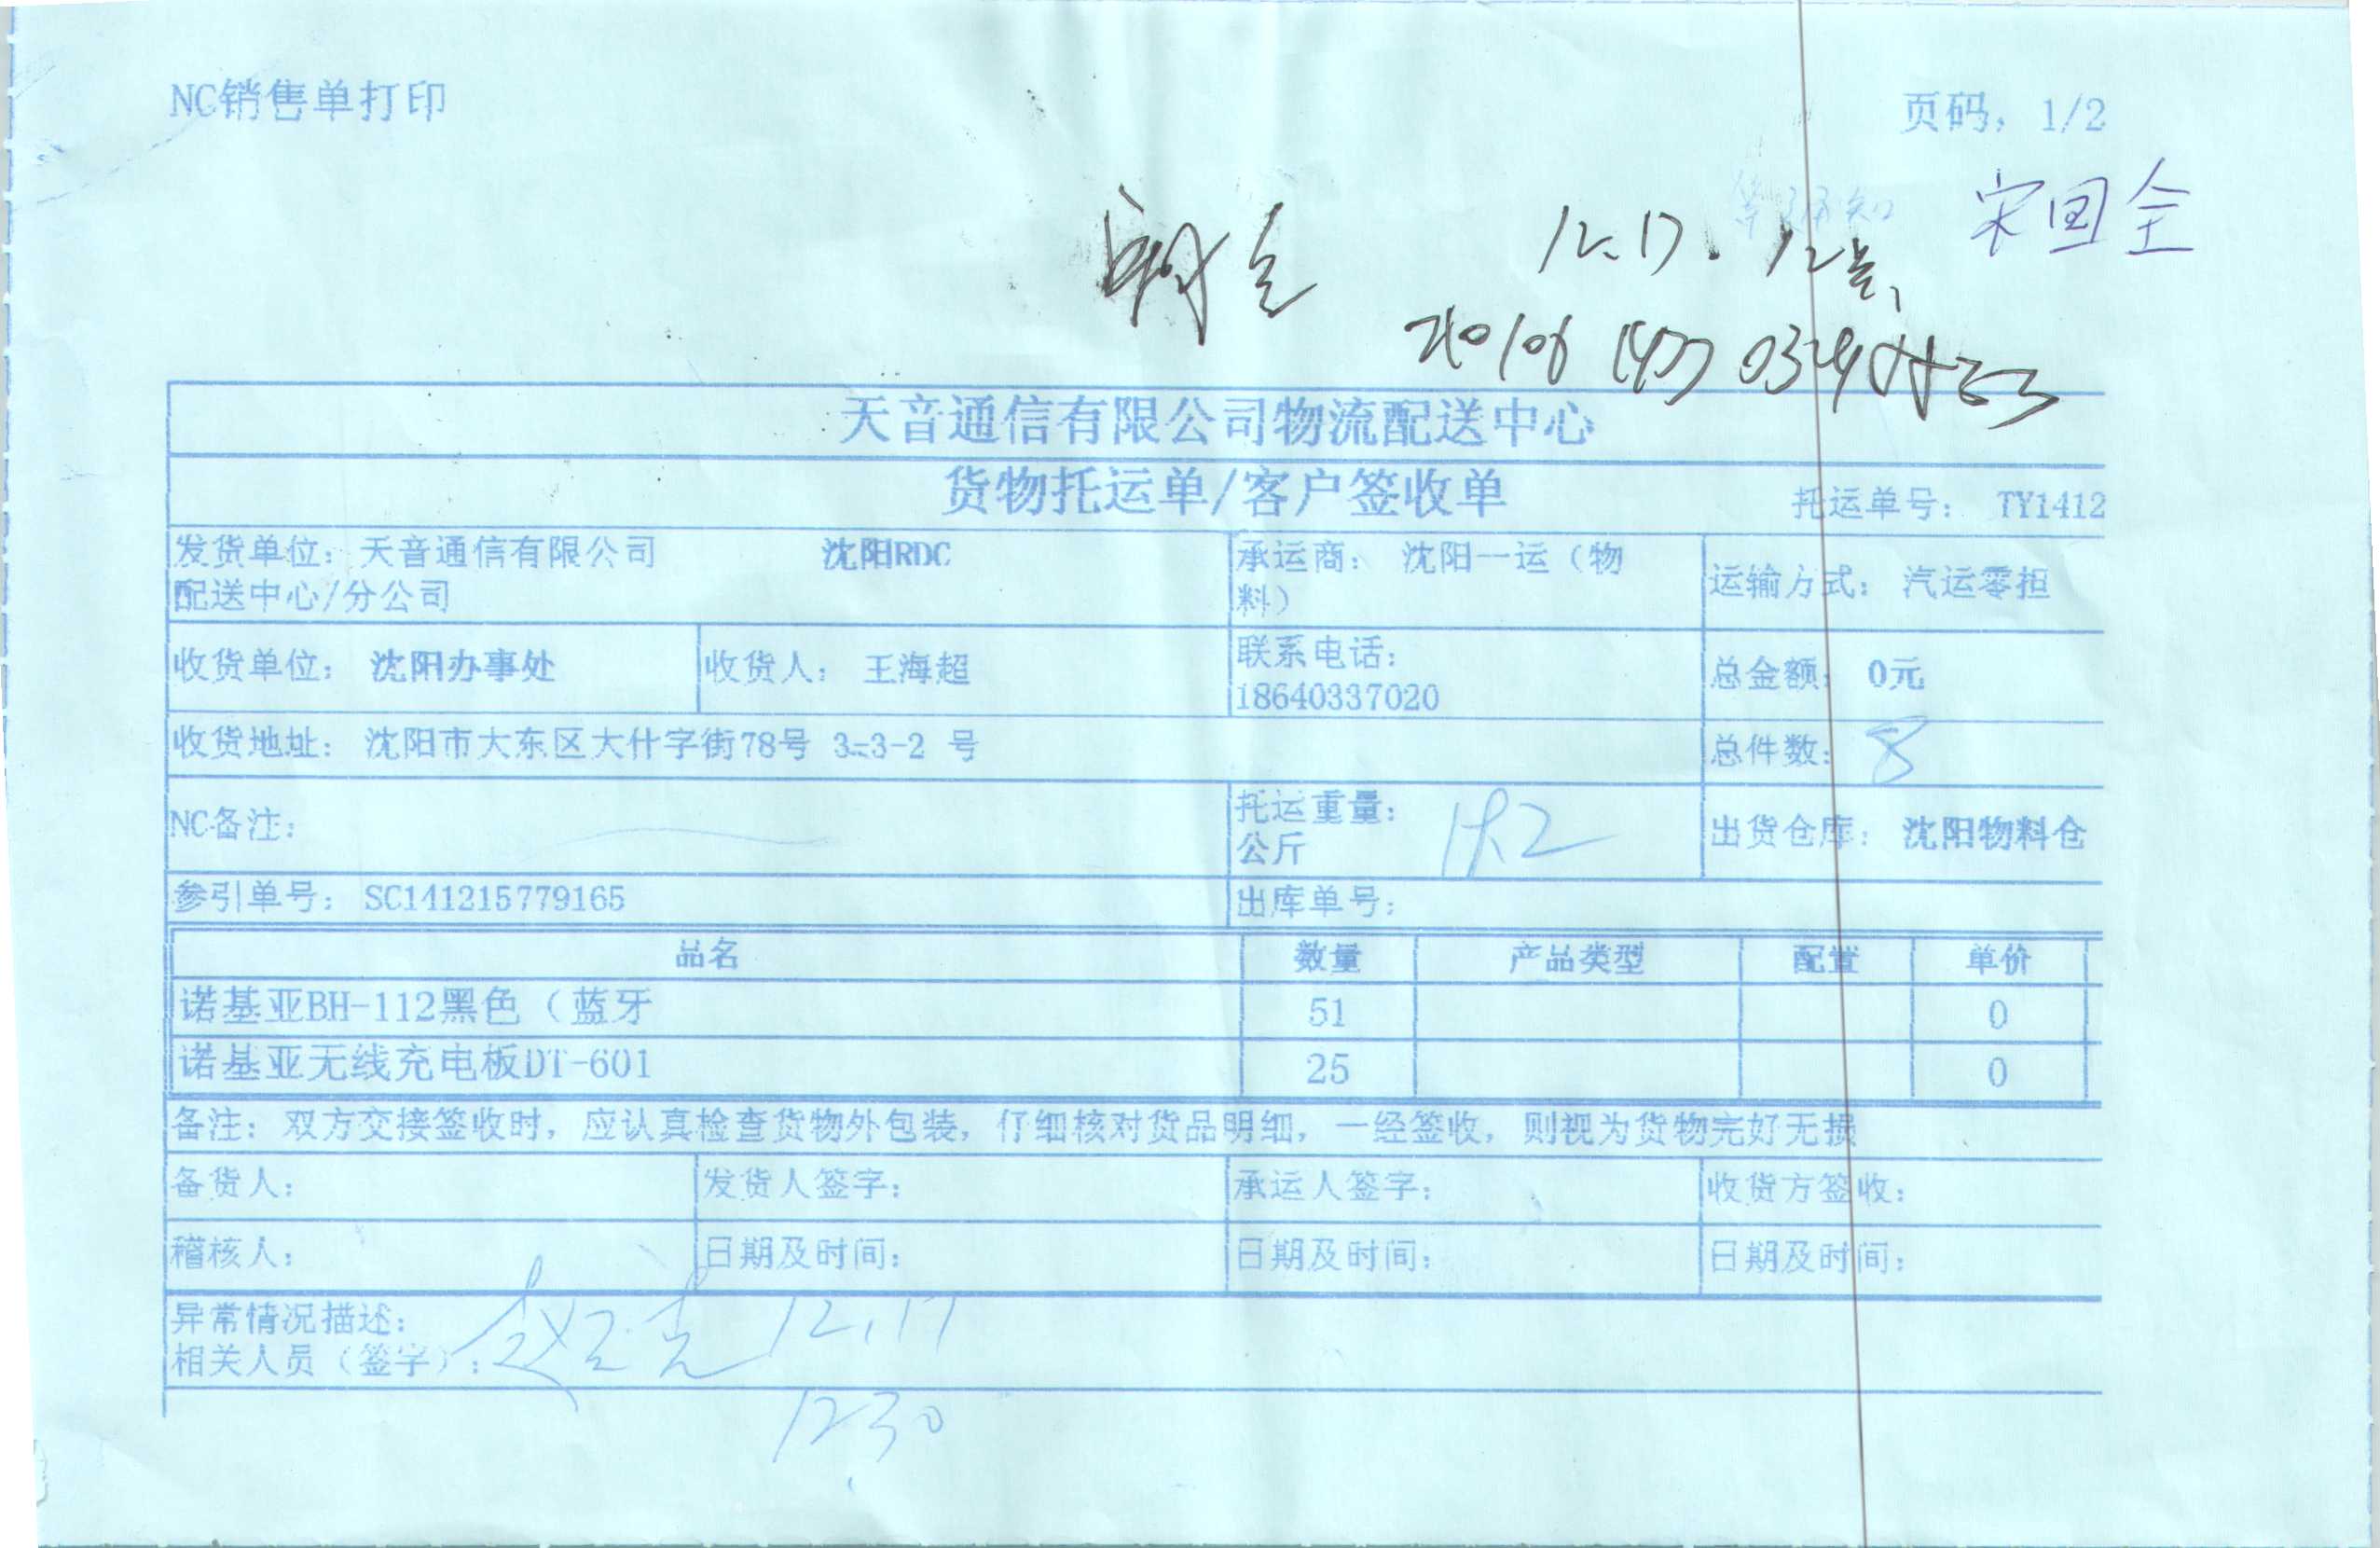 NC销售单打印
页码, 1/2
宋国全
12.17. 12点
天音通信有限公司物流配送中心
货物托运单/客户签收单 托运单号: TY1412
发货单位: 天音通信有限公司 沈阳RDC
配送中心/分公司
承运商: 沈阳一运（物
料）
运输方式: 汽运零担
收货单位: 沈阳办事处
收货人: 王海超
联系电话:
18640337020
总金额: 0元
收货地址: 沈阳市大东区大什字街78号 3-3-2 号
总件数: 8
NC备注:
托运重量:
公斤
出货仓库: 沈阳物料仓
参引单号: SC141215779165
出库单号:
品名 数量 产品类型 配置 单价
诺基亚BH-112黑色（蓝牙 51 0
诺基亚无线充电板DT-601 25 0
备注: 双方交接签收时, 应认真检查货物外包装, 仔细核对货品明细, 一经签收, 则视为货物完好无损
备货人: 发货人签字: 承运人签字: 收货方签收:
稽核人: 日期及时间: 日期及时间: 日期及时间:
异常情况描述:
相关人员（签字）: 12.17
1230